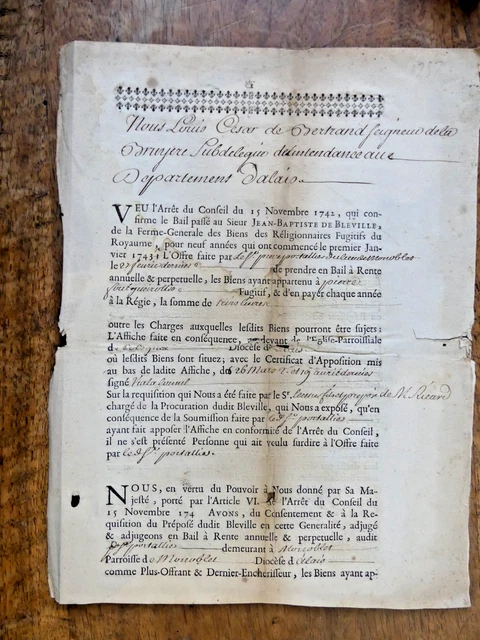 Nous Louis César de Bertrand seigneur de la
Bruyere Subdelegué de l'intendance au
Departement Dalais
VEU l'Arrêt du Conseil du 15 Novembre 1742, qui con-
firme le Bail passé au Sieur JEAN-BAPTISTE DE BLEVILLE,
de la Ferme-Generale des Biens des Réligionnaires Fugitifs du
Royaume, pour neuf années qui ont commencé le premier Jan-
vier 1743; L'Offre faite par le Sr portallier
le de prendre en Bail à Rente
annuelle & perpetuelle, les Biens ayant appartenu à pierre
Fugitif, & d'en payer chaque année
à la Régie, la somme de trois livres
outre les Charges auxquelles lesdits Biens pourront être sujets;
L'Affiche faite en conséquence, au-devant de l'Eglise-Parroissiale
d Diocèse d
où lesdits Biens sont situez; avec le Certificat d'Apposition mis
au bas de ladite Affiche, des 26 Mars
signé
Sur la requisition qui Nous a été faite par le Sr. de M. Ricard
chargé de la Procuration dudit Bleville, qui Nous a exposé, qu'en
conséquence de la Soumission faite par le d. Sr. portallier
ayant fait apposer l'Affiche en conformité de l'Arrêt du Conseil,
il ne s'est présenté Personne qui ait veulu surdire à l'Offre faite
par le d. Sr. portallier
NOUS, en vertu du Pouvoir à Nous donné par Sa Ma-
jesté, porté par l'Article VI. de l'Arrêt du Conseil du
15 Novembre 174 AVONS, du Consentement & à la Re-
quisition du Préposé dudit Bleville en cette Generalité, adjugé
& adjugeons en Bail à Rente annuelle & perpetuelle, audit
Sr. portallier demeurant à Monoblet
Parroisse de Monoblet Diocèse d'Alais
comme Plus-Offrant & Dernier-Encherisseur, les Biens ayant ap-